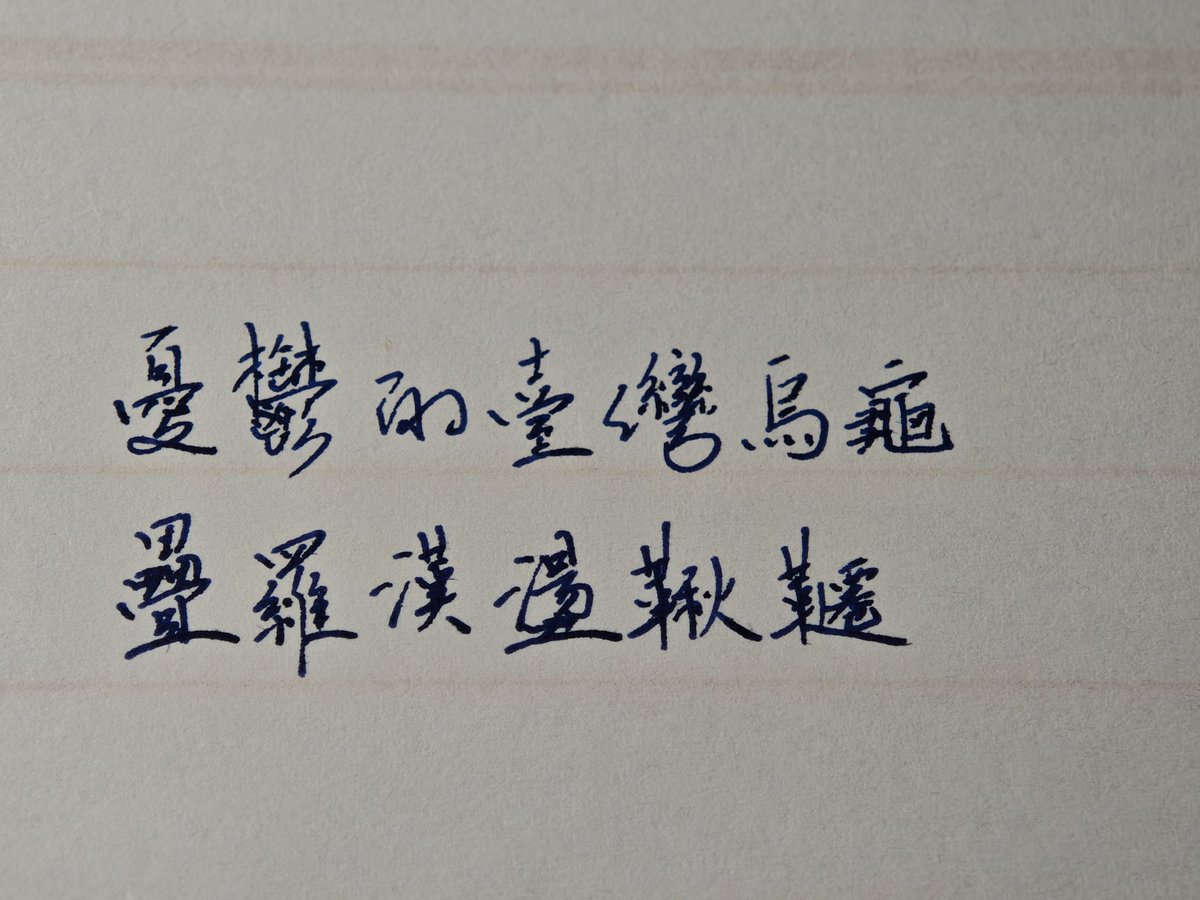 憂鬱的臺灣烏龜
疊羅漢盪鞦韆